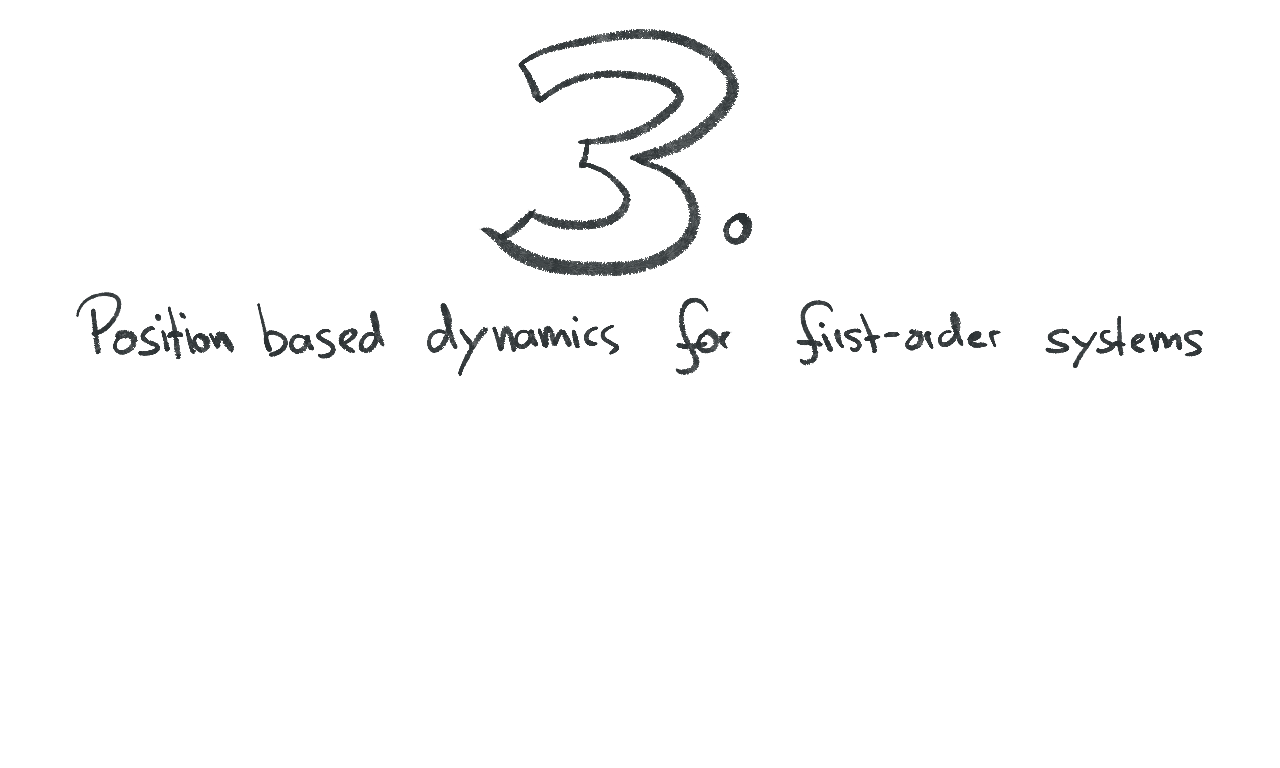 3.
Position based dynamics for first-order systems